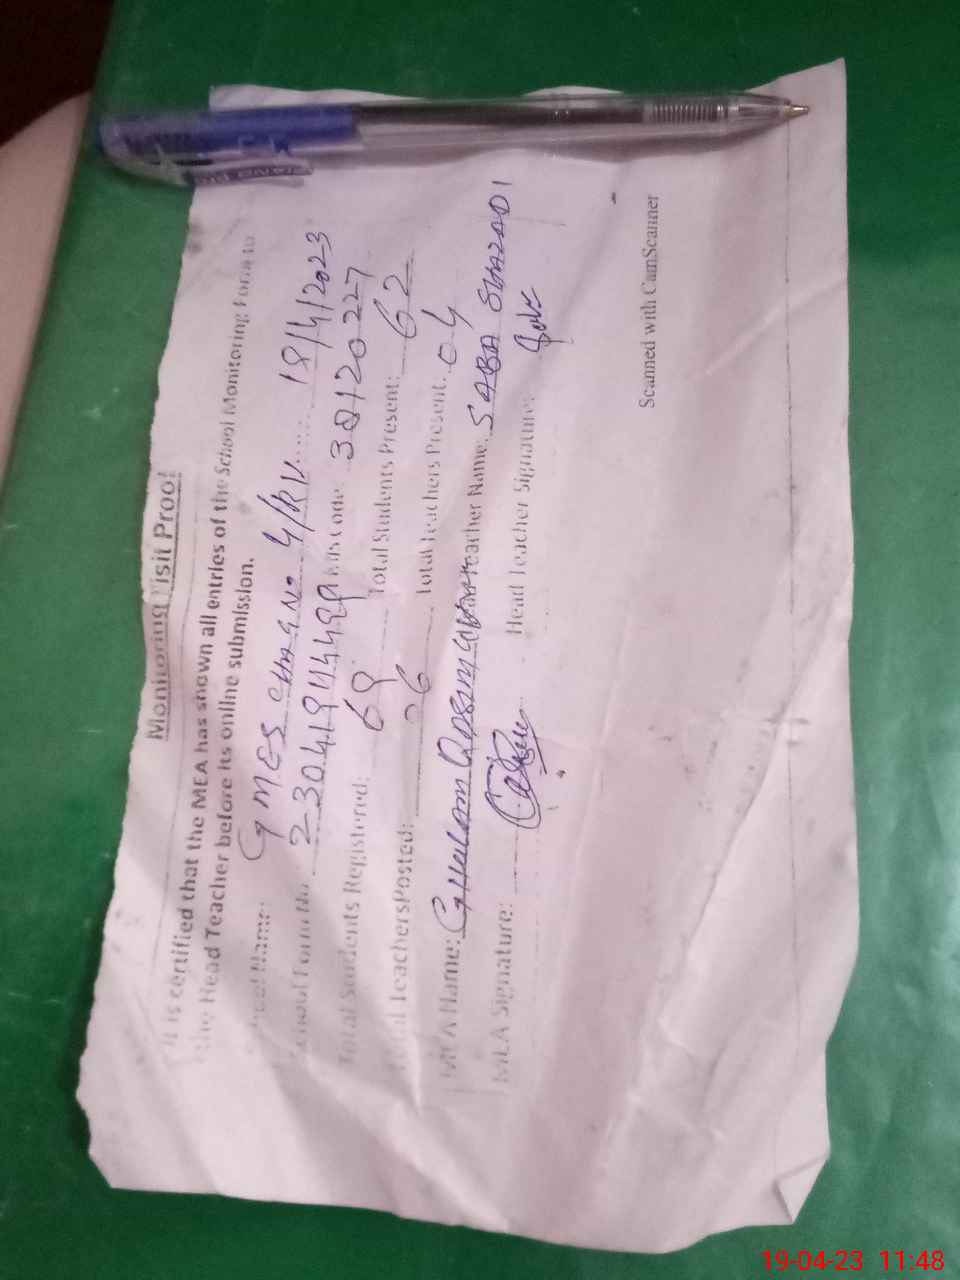 Monitoring Visit Proof
It is certified that the MEA has shown all entries of the School Monitoring Form to
the Head Teacher before its online submission.
School Name: GMES CHAK NO 4/RU..... 18/4/2023
School Form No 230419144499 Emis Code 38120227
Total Students Registered: 69 Total Students Present: 62
Total Teachers Posted: 06 Total Teachers Present: 04
MEA Name: Teacher Name: SABA SHAZADI
MEA Signature: Head Teacher Signature:
Scanned with CamScanner
19-04-23 11:48